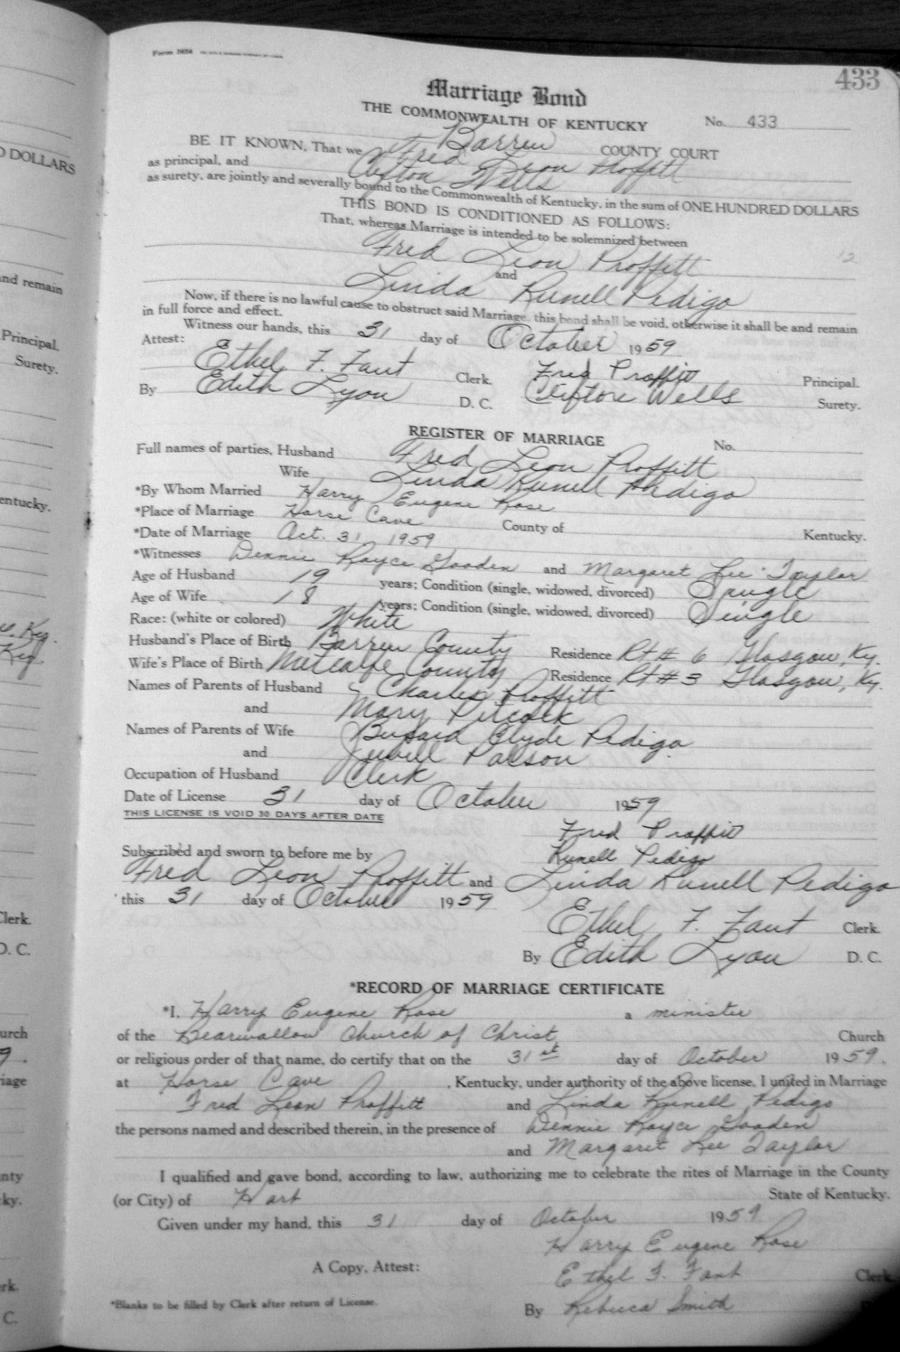 433
Form 2654
Marriage Bond
THE COMMONWEALTH OF KENTUCKY No. 433
BE IT KNOWN, That we Barren COUNTY COURT
as principal, and Fred Leon Proffitt
Clifton Wells
as surety, are jointly and severally bound to the Commonwealth of Kentucky, in the sum of ONE HUNDRED DOLLARS
THIS BOND IS CONDITIONED AS FOLLOWS:
That, whereas Marriage is intended to be solemnized between
Fred Leon Proffitt
and
Linda Runell Pedigo
Now, if there is no lawful cause to obstruct said Marriage, this bond shall be void, otherwise it shall and remain
in full force and effect.
Witness our hands, this 31 day of October 1959
Attest:
Ethel F. Faut Clerk. Fred Proffitt Principal.
By Edith Lyon D. C. Clifton Wells Surety.
REGISTER OF MARRIAGE
No.
Full names of parties, Husband Fred Leon Proffitt
Wife Linda Runell Pedigo
*By Whom Married Harry Eugene Rose
*Place of Marriage Horse Cave County of Kentucky.
*Date of Marriage Oct. 31, 1959
*Witnesses Dennie Royce Gooden and Margaret Lee Taylor
Age of Husband 19 years; Condition (single, widowed, divorced) Single
Age of Wife 18 years; Condition (single, widowed, divorced) Single
Race: (white or colored) White
Husband's Place of Birth Barren County Residence Rt # 6 Glasgow, Ky.
Wife's Place of Birth Metcalfe County Residence Rt # 3 Glasgow, Ky.
Names of Parents of Husband Charles Proffitt
and Mary
Names of Parents of Wife Clyde Pedigo
and Juell
Occupation of Husband Clerk
Date of License 31 day of October 1959
THIS LICENSE IS VOID 30 DAYS AFTER DATE
Fred Proffitt
Runell Pedigo
Subscribed and sworn to before me by
Fred Leon Proffitt and Linda Runell Pedigo
this 31 day of October 1959
Ethel F. Faut Clerk.
By Edith Lyon D. C.
*RECORD OF MARRIAGE CERTIFICATE
*I, Harry Eugene Rose a minister
of the Bearwallow Church of Christ Church
or religious order of that name, do certify that on the 31st day of October 1959.
at Horse Cave, Kentucky, under authority of the above license, I united in Marriage
Fred Leon Proffitt and Linda Runell Pedigo
the persons named and described therein, in the presence of Dennie Royce Gooden
and Margaret Lee Taylor
I qualified and gave bond, according to law, authorizing me to celebrate the rites of Marriage in the County
(or City) of Hart State of Kentucky.
Given under my hand, this 31 day of October 1959
Harry Eugene Rose
A Copy, Attest: Ethel F. Faut Clerk
By Rebecca Smith
*Blanks to be filled by Clerk after return of License.